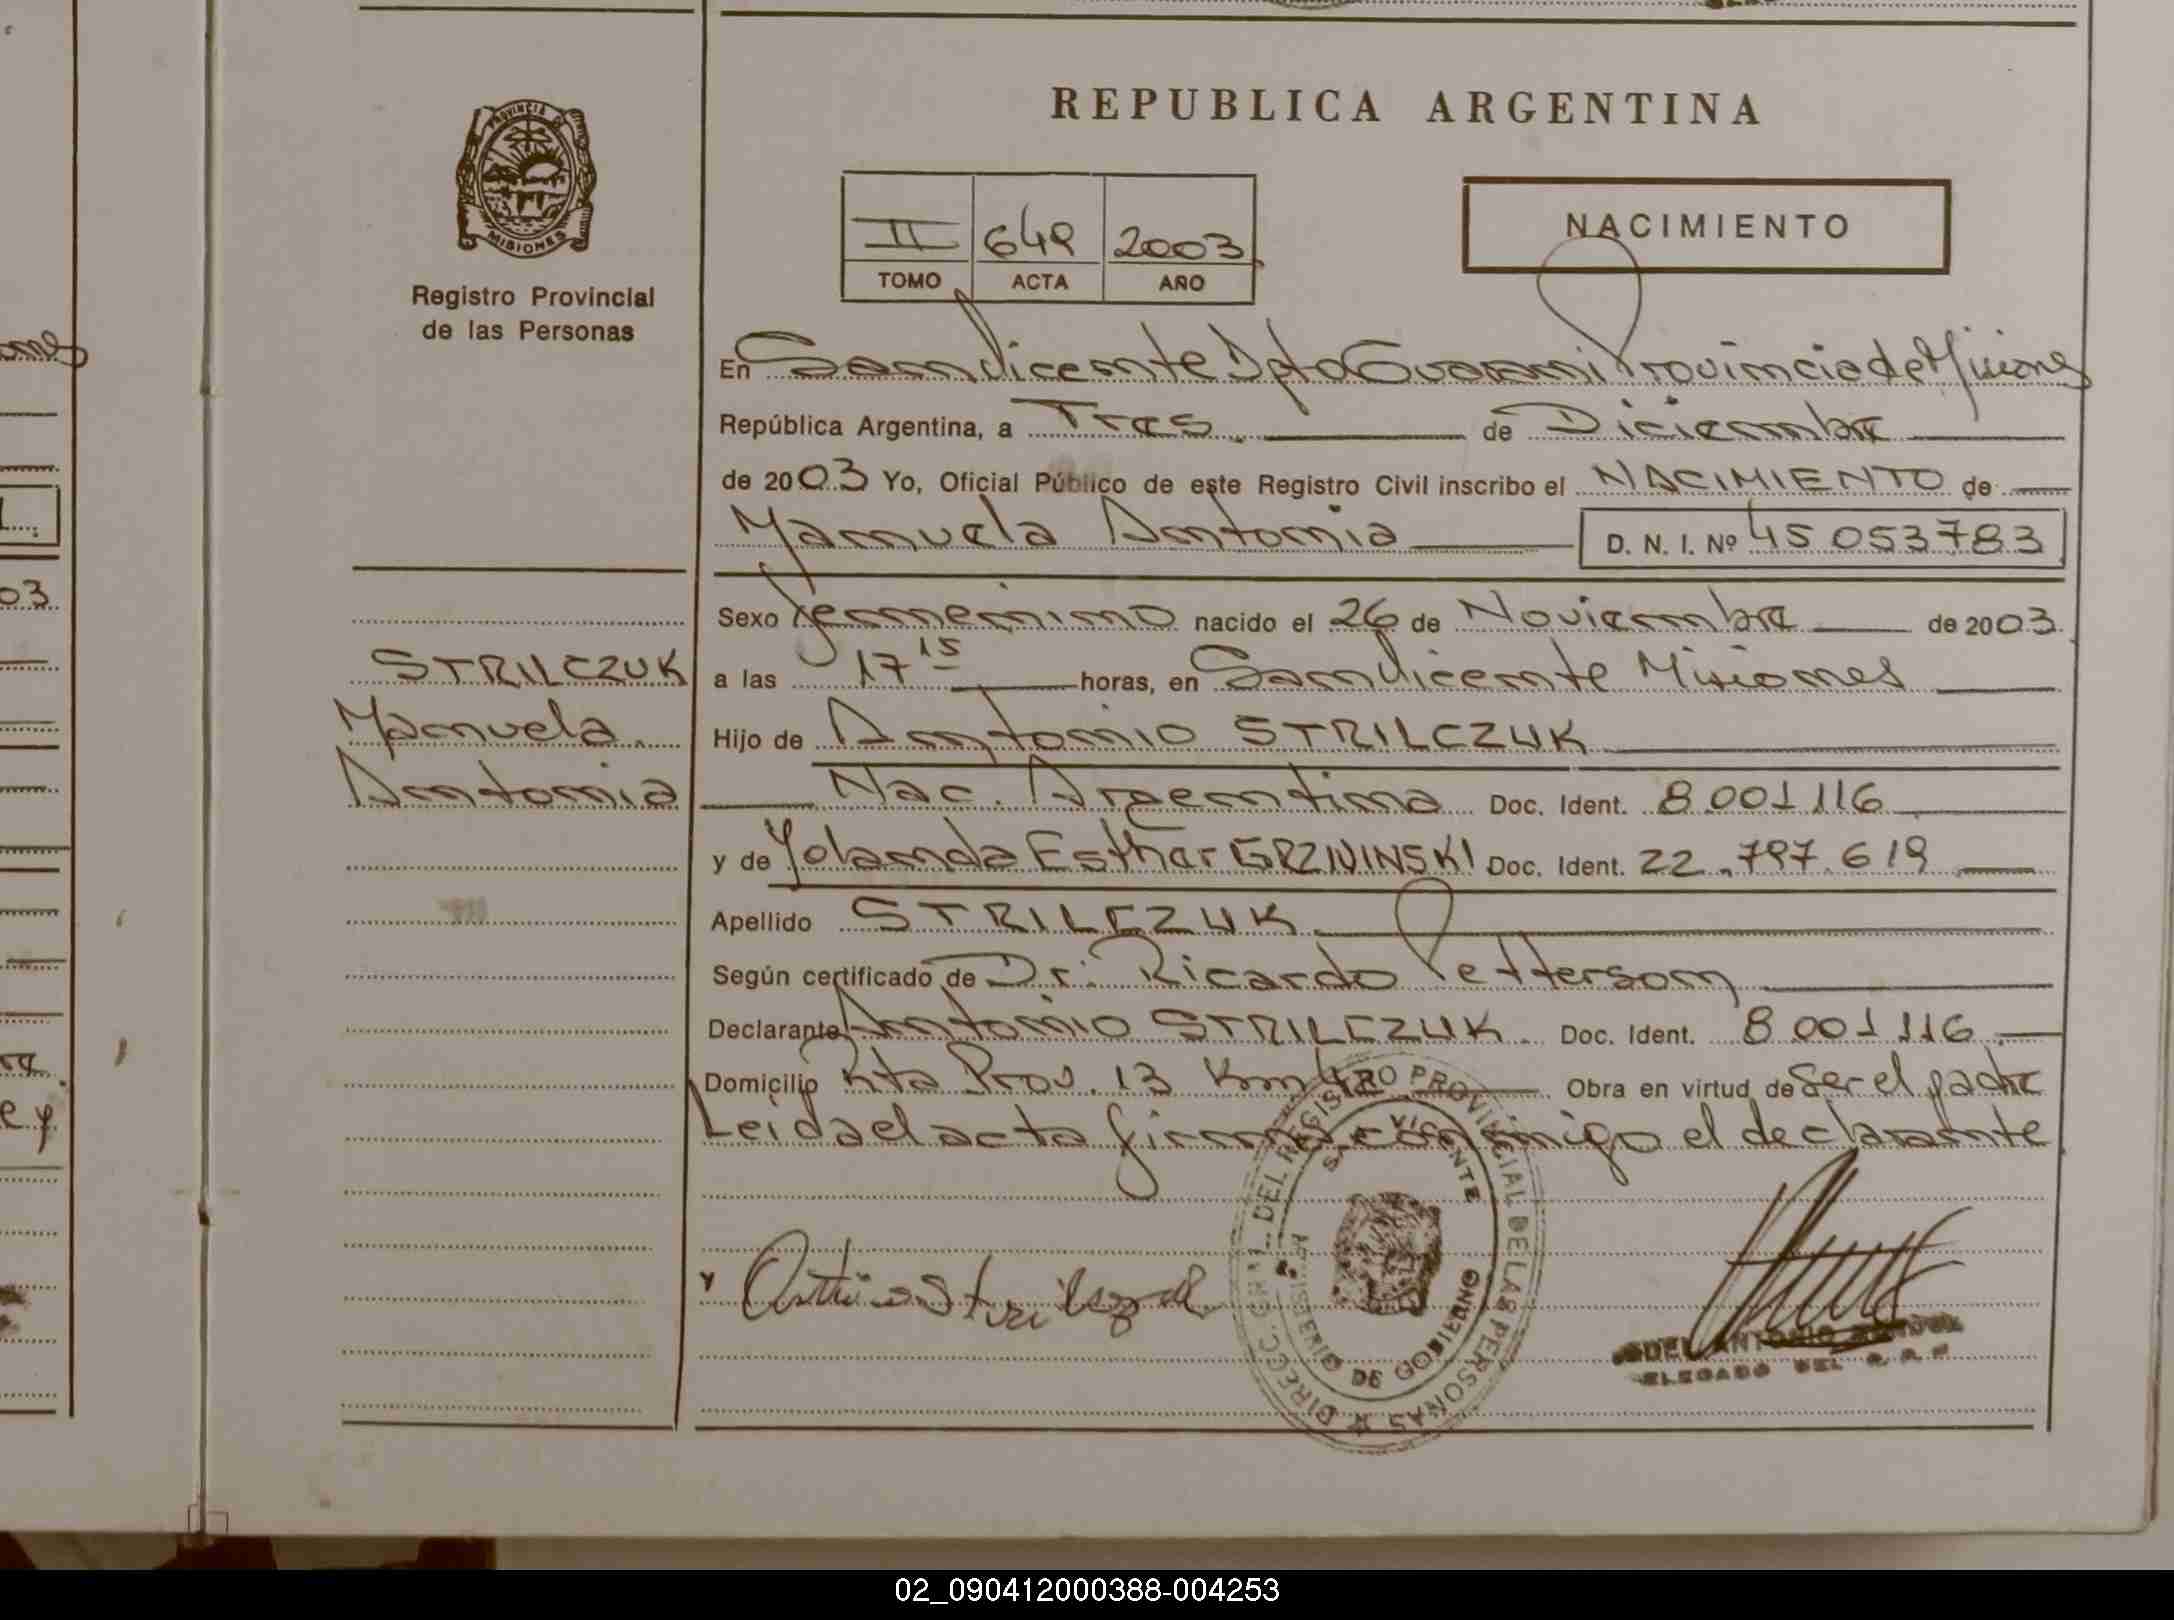 REPUBLICA ARGENTINA
PROVINCIA DE
MISIONES
Registro Provincial
de las Personas
II 649 2003
TOMO ACTA AÑO
NACIMIENTO
En San Vicente Dpto Guarani Provincia de Misiones
República Argentina, a Tres de Diciembre
de 2003 Yo, Oficial Público de este Registro Civil inscribo el NACIMIENTO de
Manuela Antonia D. N. I. Nº 45 053783
Sexo femenino nacido el 26 de Noviembre de 2003
a las 17 15 horas, en San Vicente Misiones
Hijo de Antonio STRILCZUK
Nac. Argentina Doc. Ident. 8 001 116
y de Yolanda Esther GRZIVINSKI Doc. Ident. 22.797.619
Apellido STRILCZUK
Según certificado de Dr. Ricardo Petterson
Declarante Antonio STRILCZUK. Doc. Ident. 8 001 116
Domicilio Rta Prov. 13 Km Obra en virtud de Ser el padre
Leida el acta firma conmigo el declarante
STRILCZUK
Manuela
Antonia
DIRECC. GRAL. DEL REGISTRO PROVINCIAL DE LAS PERSONAS
SAN VICENTE
MINISTERIO DE GOBIERNO
ANTONIO
DEL R. P. P.
03
e y
02_090412000388-004253